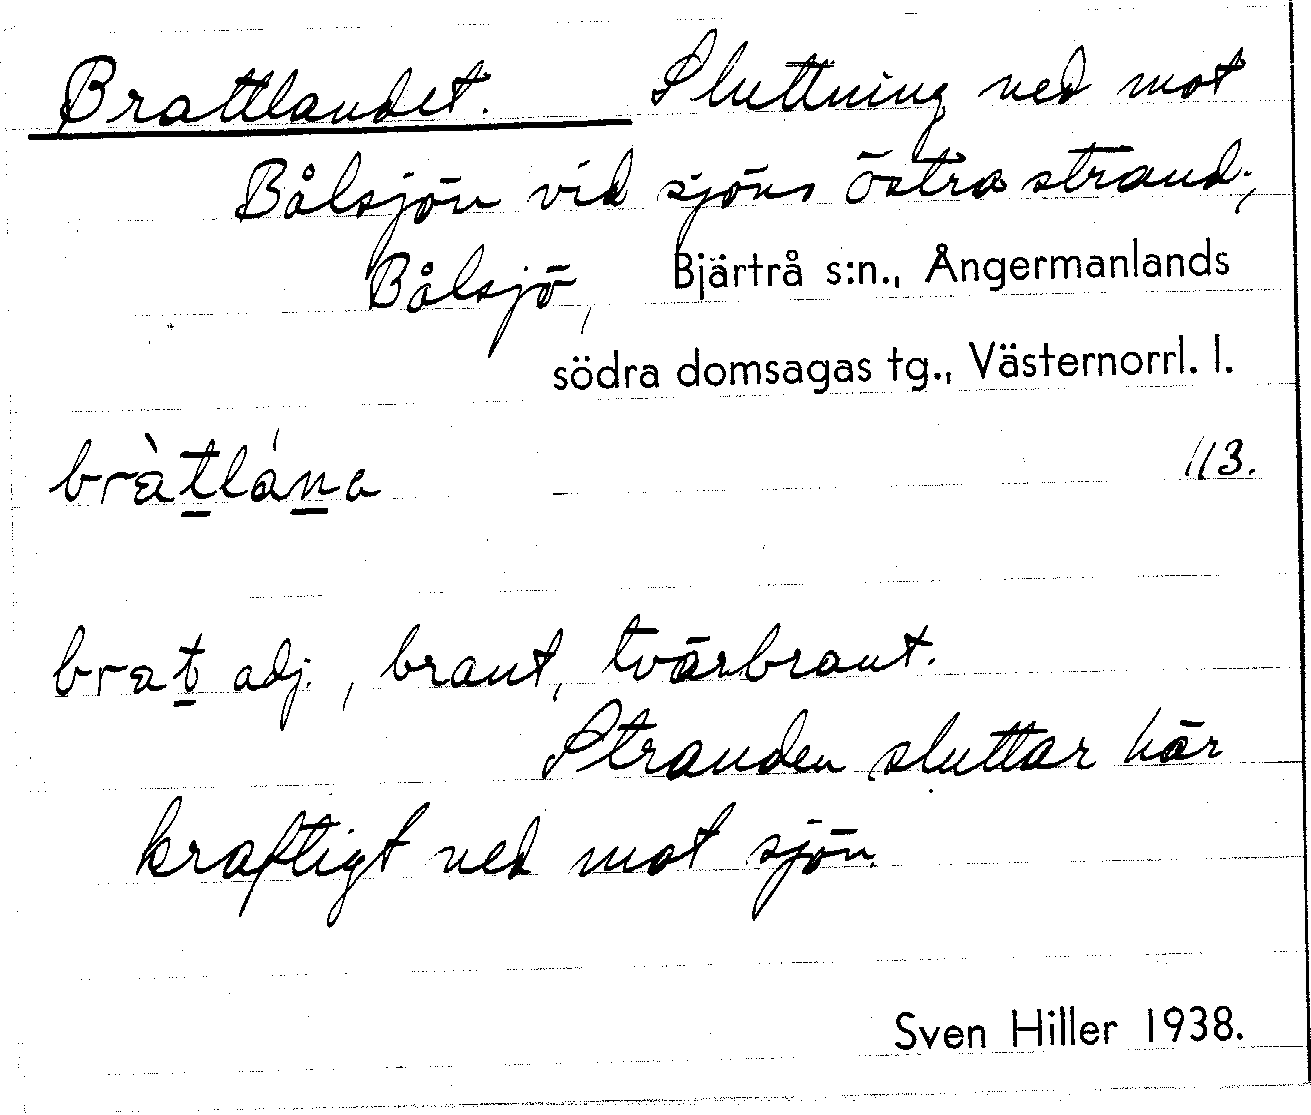 Brattlandet. Sluttning ned mot
Bålsjön vid sjöns östra strand;
Bålsjö, Bjärtrå s:n., Ångermanlands
södra domsagas tg., Västernorrl. l.
bràtlána 113.
brat adj., brant, tvärbrant.
Stranden sluttar här
kraftigt ned mot sjön.
Sven Hiller 1938.